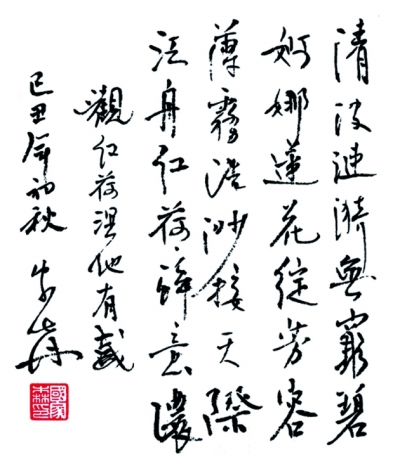 清波漣漪無窮碧
婀娜蓮花綻芳容
薄霧浩渺接天際
泛舟红荷意濃
觀红荷湿地有感
己丑年初秋